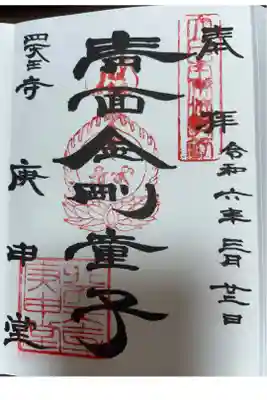 奉拝
令和六年三月廿三日
青面金剛童子
四天王寺
庚申堂